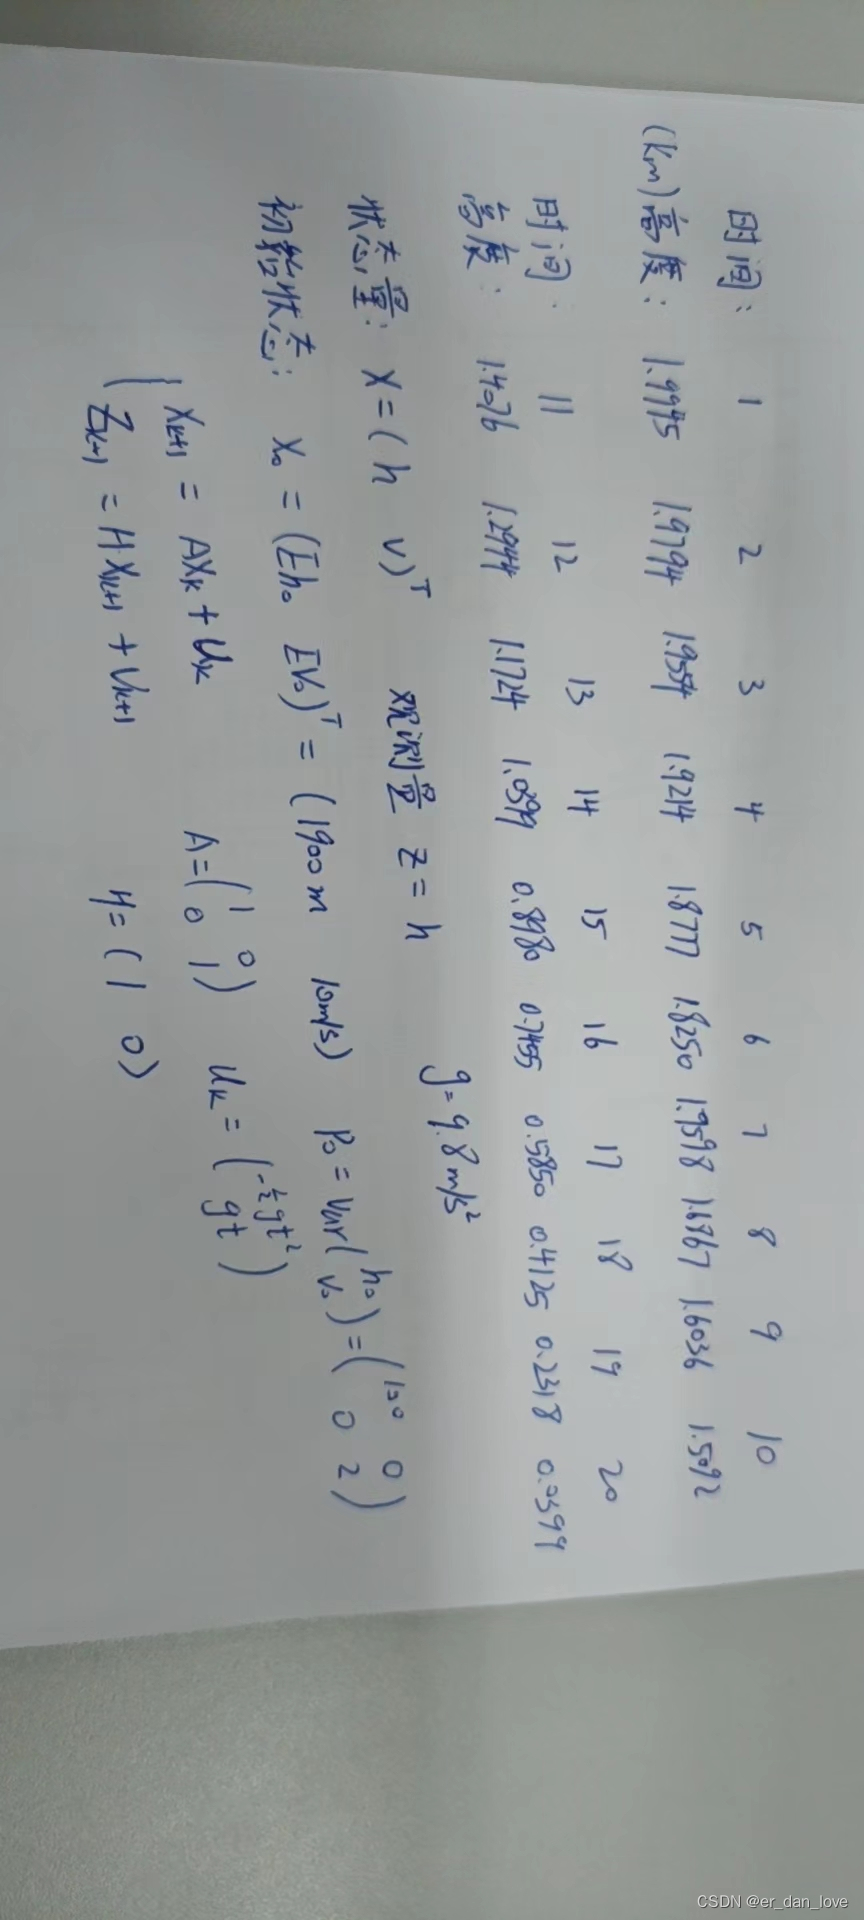 时间: 1 2 3 4 5 6 7 8 9 10
(km)高度: 1.9945 1.9794 1.9554 1.9214 1.8777 1.8250 1.9598 1.6867 1.6036 1.5092
时间: 11 12 13 14 15 16 17 18 19 20
高度: 1.4076 1.2944 1.1724 1.0399 0.8980 0.7455 0.5850 0.4125 0.2318 0.0399
状态量: X=(h v)ᵀ 观测量 Z=h g=9.8m/s²
初始状态: X₀=(Eh₀ EV₀)ᵀ=(1900m 10m/s) P₀=Var(h₀ V₀)=(100 0 0 2)
{ Xₖ₊₁ = AXₖ + Uₖ A=(1 0 0 1) Uₖ=(-½gt² gt)
Zₖ₊₁ = HXₖ₊₁ + Vₖ₊₁ H=(1 0)
CSDN @er_dan_love